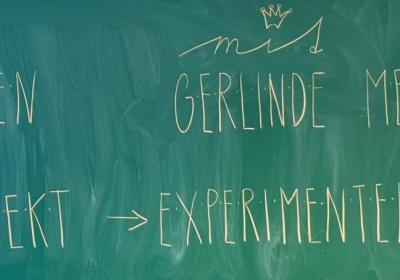 mid
EN GERLINDE ME
EKT → EXPERIMENTE